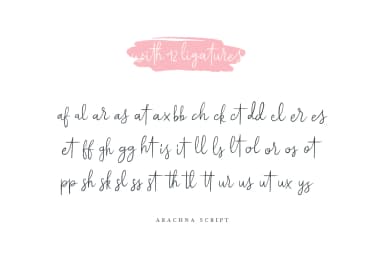 with 42 ligatures
af al ar as at ax bb ch ck ct dd el er es
et ff gh gg ht is it ll ls lt ol or os ot
pp sh sk sl ss st th tl tt ur us ut ux ys
ARACHNA SCRIPT